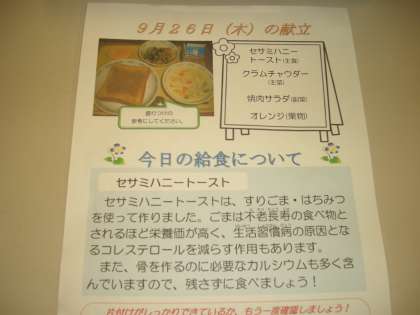 9月26日（木）の献立
セサミハニー
トースト(主食)
クラムチャウダー
(主菜)
焼肉サラダ(副菜)
オレンジ(果物)
盛りつけの
参考にしてください。
今日の給食について
セサミハニートースト
セサミハニートーストは、すりごま・はちみつ
を使って作りました。ごまは不老長寿の食べ物と
されるほど栄養価が高く、生活習慣病の原因とな
るコレステロールを減らす作用もあります。
また、骨を作るのに必要なカルシウムも多く含
んでいますので、残さずに食べましょう！
片付けがしっかりできているか、もう一度確認しましょう！